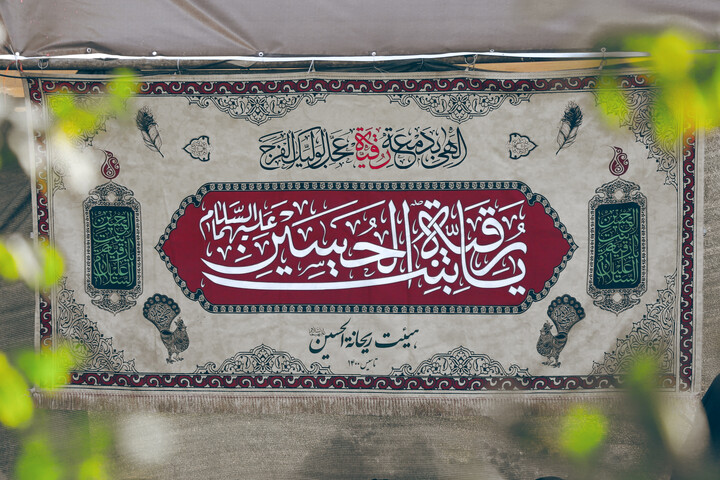 الهی بدمعة رقیة عجل لولیک الفرج
یا رقیة بنت الحسین علیهما السلام
هیئت ریحانة الحسین
تاسیس ۱۴۰۰